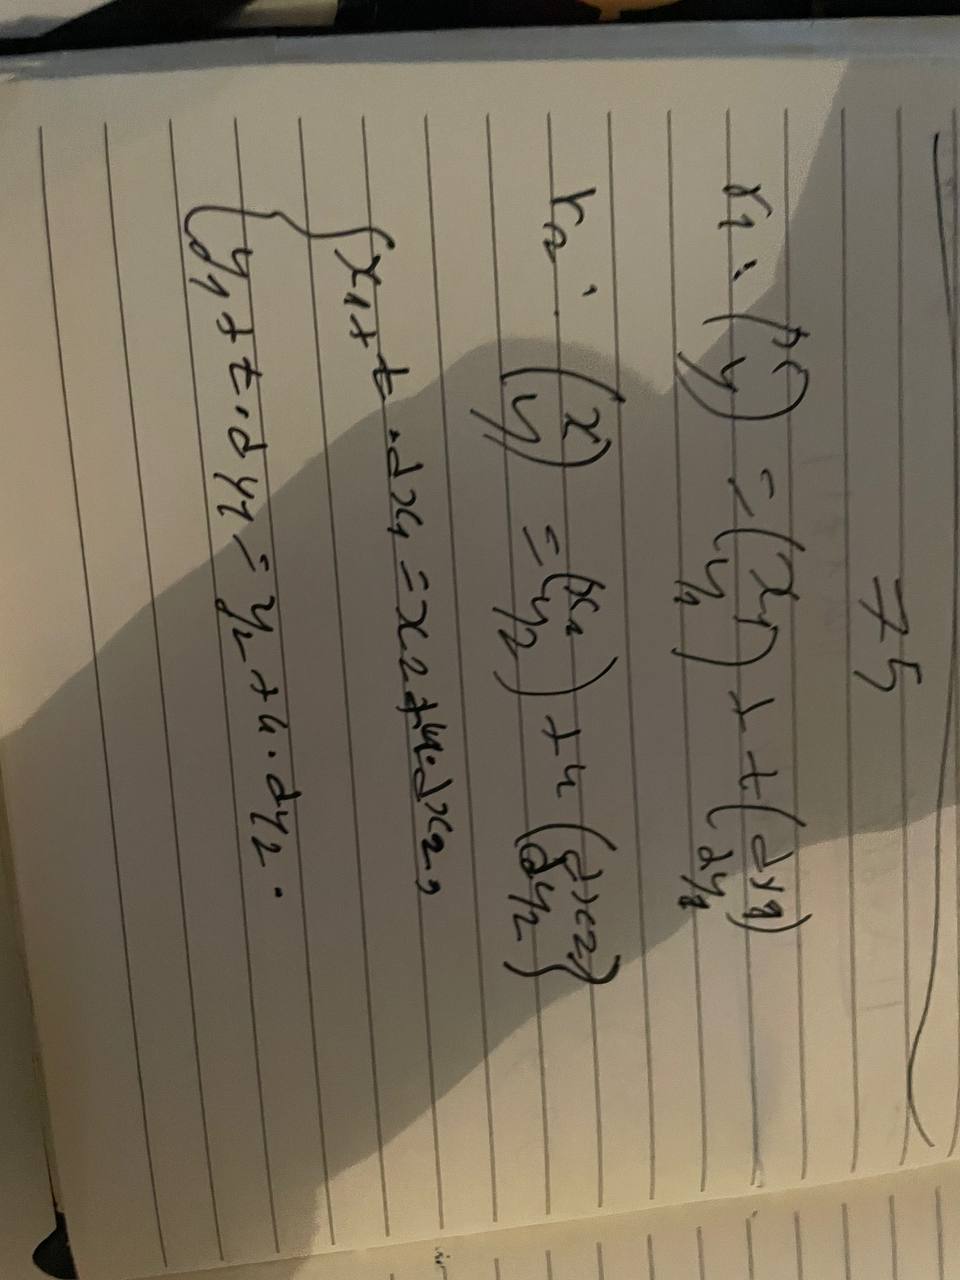 75
r1: (x y) = (x1 y1) + t (dx1 dy1)
r2: (x y) = (x2 y2) + u (dx2 dy2)
{ x1 + t · dx1 = x2 + u · dx2,
y1 + t · dy1 = y2 + u · dy2.